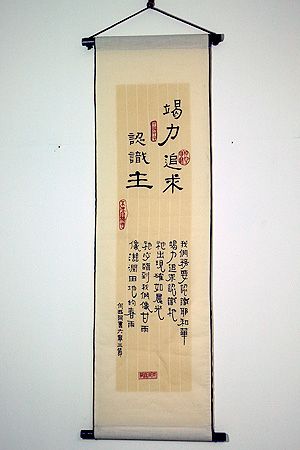 竭力追求
認識主
我們務要認識耶和華
竭力追求認識祂
祂出現確如晨光
祂必臨到我們像甘雨
像滋潤田地的春雨
何西阿書六章三節